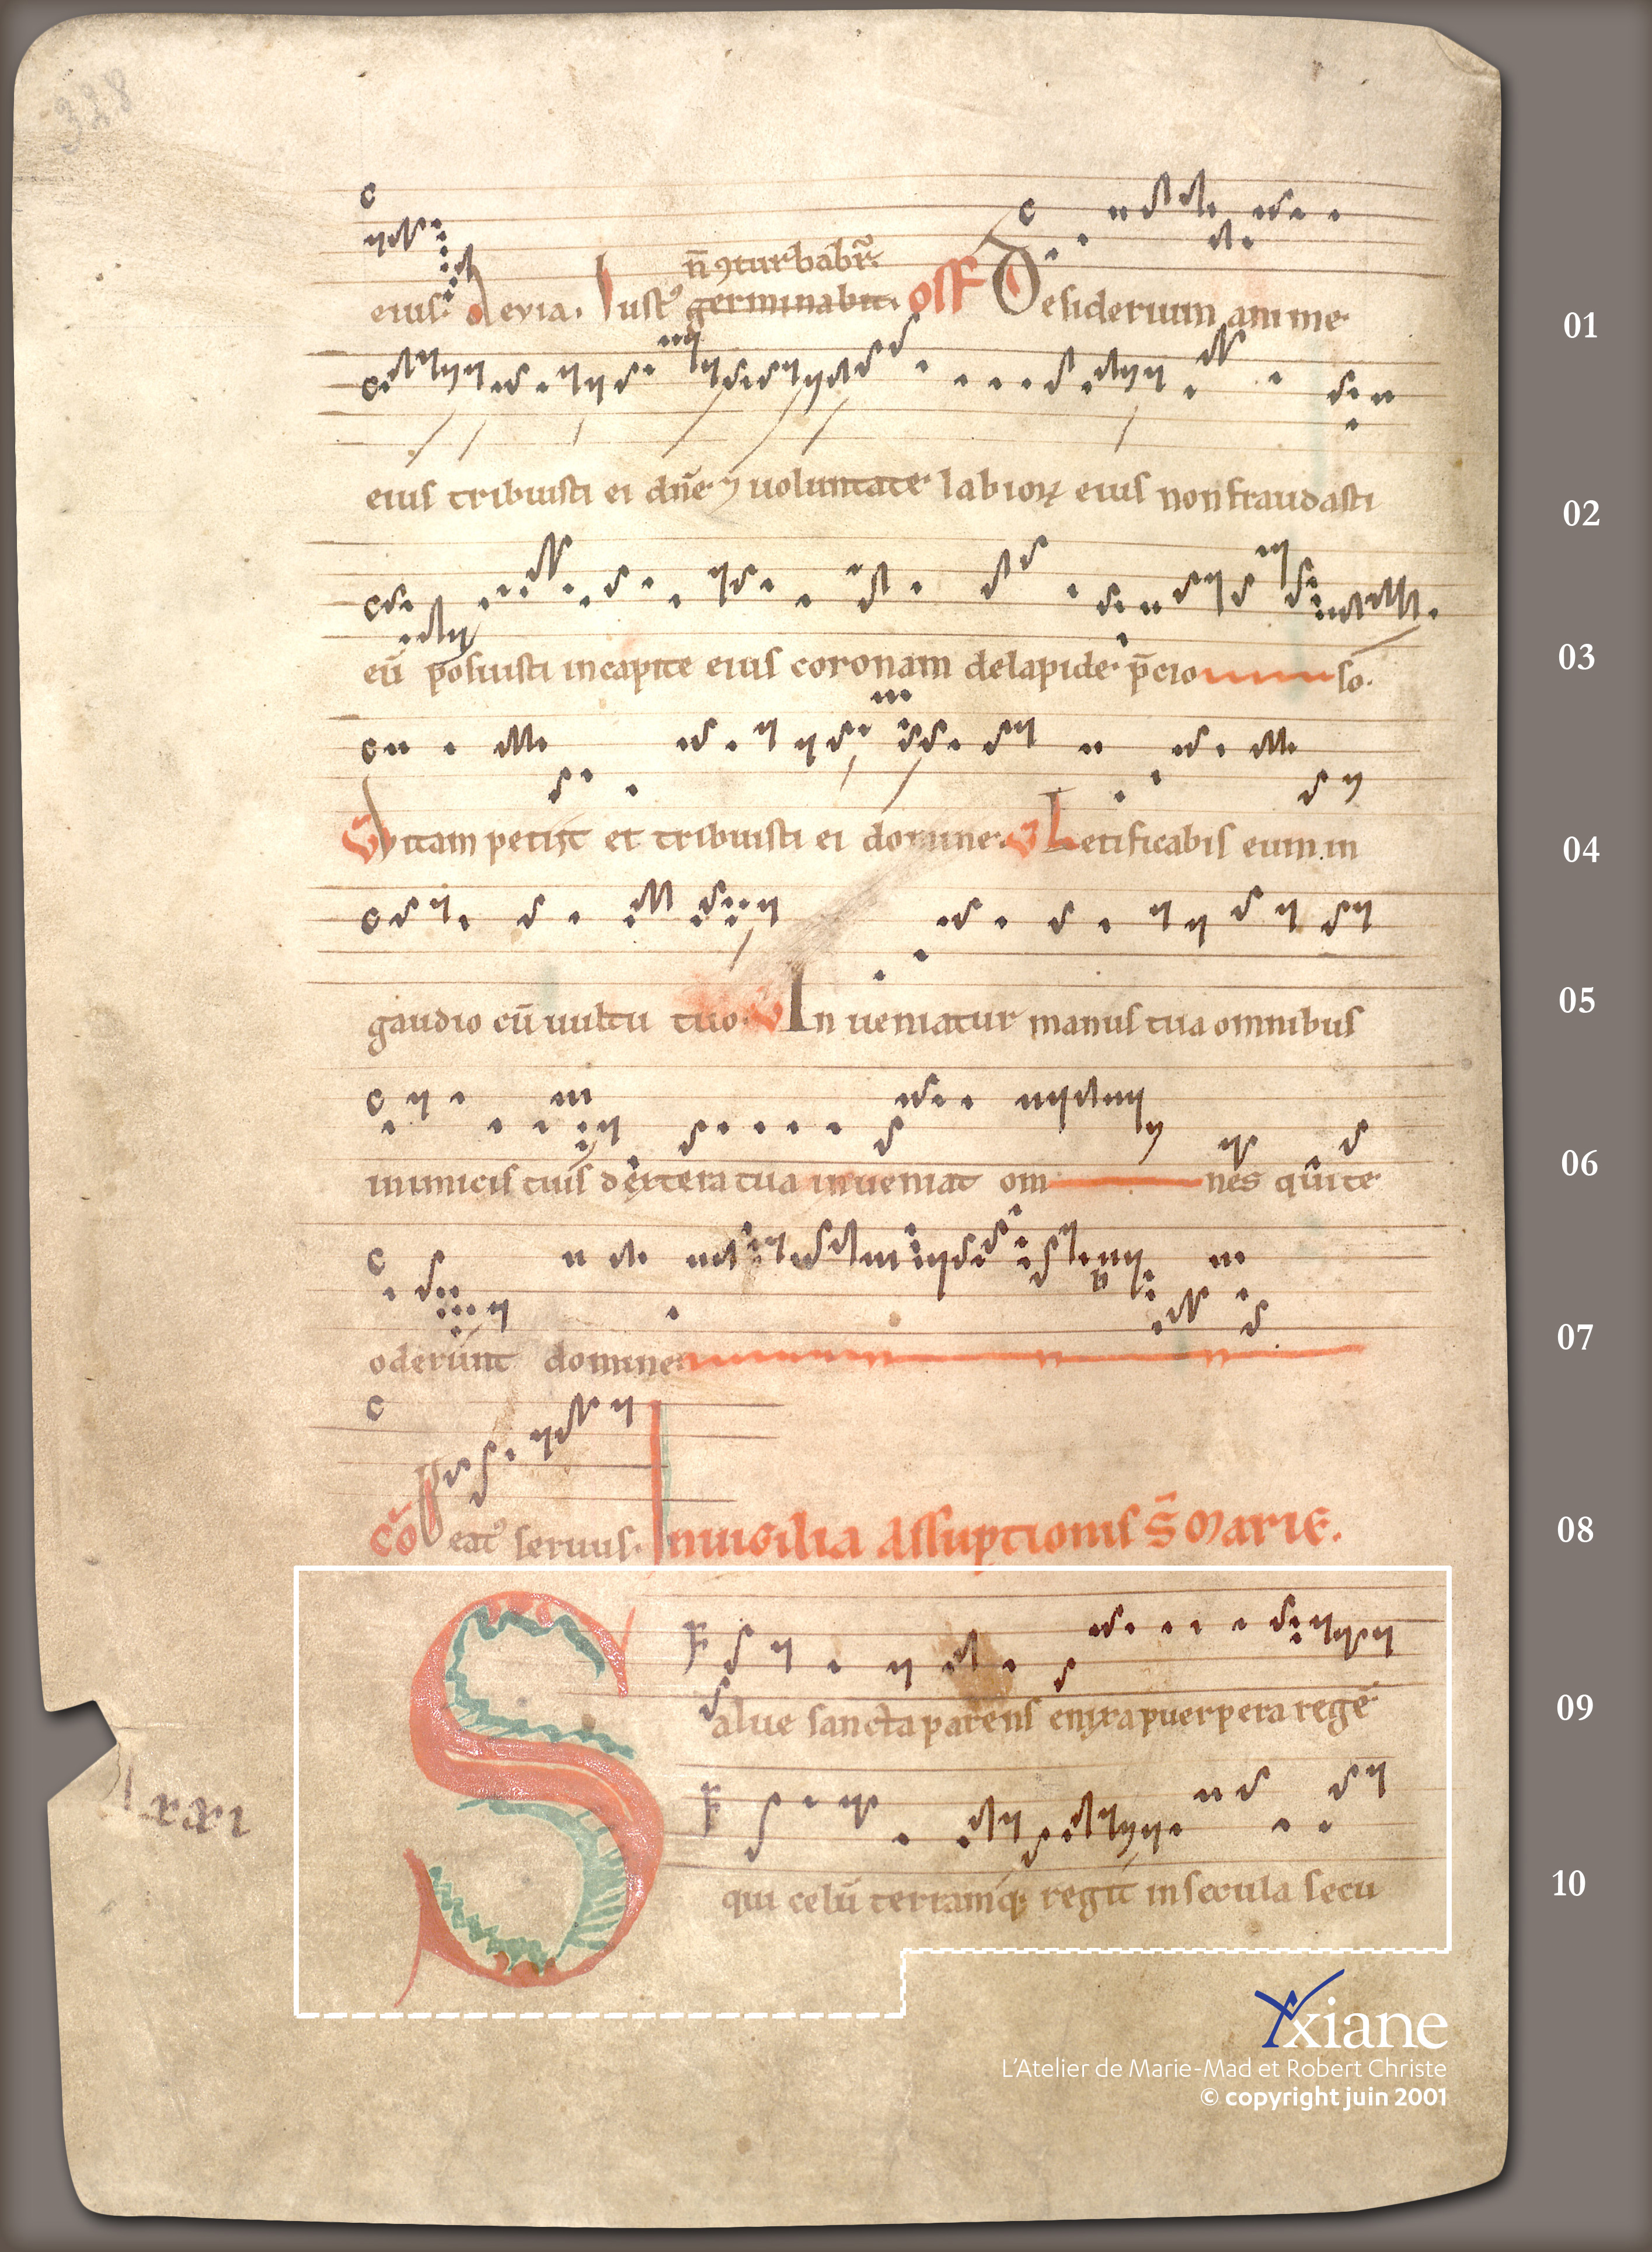 328
n̄ ꝯturbabr̃.
eius. Alleuia. Iustꝰ germinabit. off Desiderium anime
01
eius tribuisti ei dñe ⁊ uoluntate labioꝝ eius non fraudasti
02
eū posuisti in capite eius coronam de lapide p̄cio so.
03
V Vitam petiit et tribuisti ei domine. V Letificabis eum in
04
gaudio cū uultu tuo. V Inueniatur manus tua omnibus
05
inimicis tuis dextera tua inueniat om nes qui te
06
oderunt domine
07
cō Beatꝰ seruus. In uigilia assuptionis S̄ Marie.
08
Salue sancta parens enixa puerpera regē
09
lxxxi
qui celū terramq; regit in secula secu
10
Yxiane
L'Atelier de Marie-Mad et Robert Christe
© copyright juin 2001